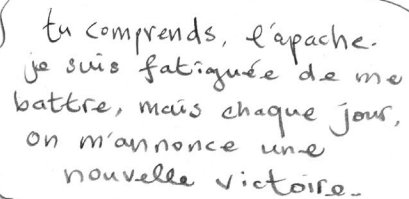 tu comprends, l'apache.
je suis fatiguée de me
battre, mais chaque jour,
on m'annonce une
nouvelle victoire.